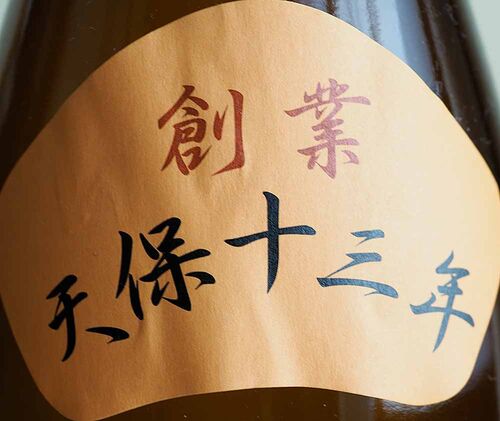 創業
天保十三年